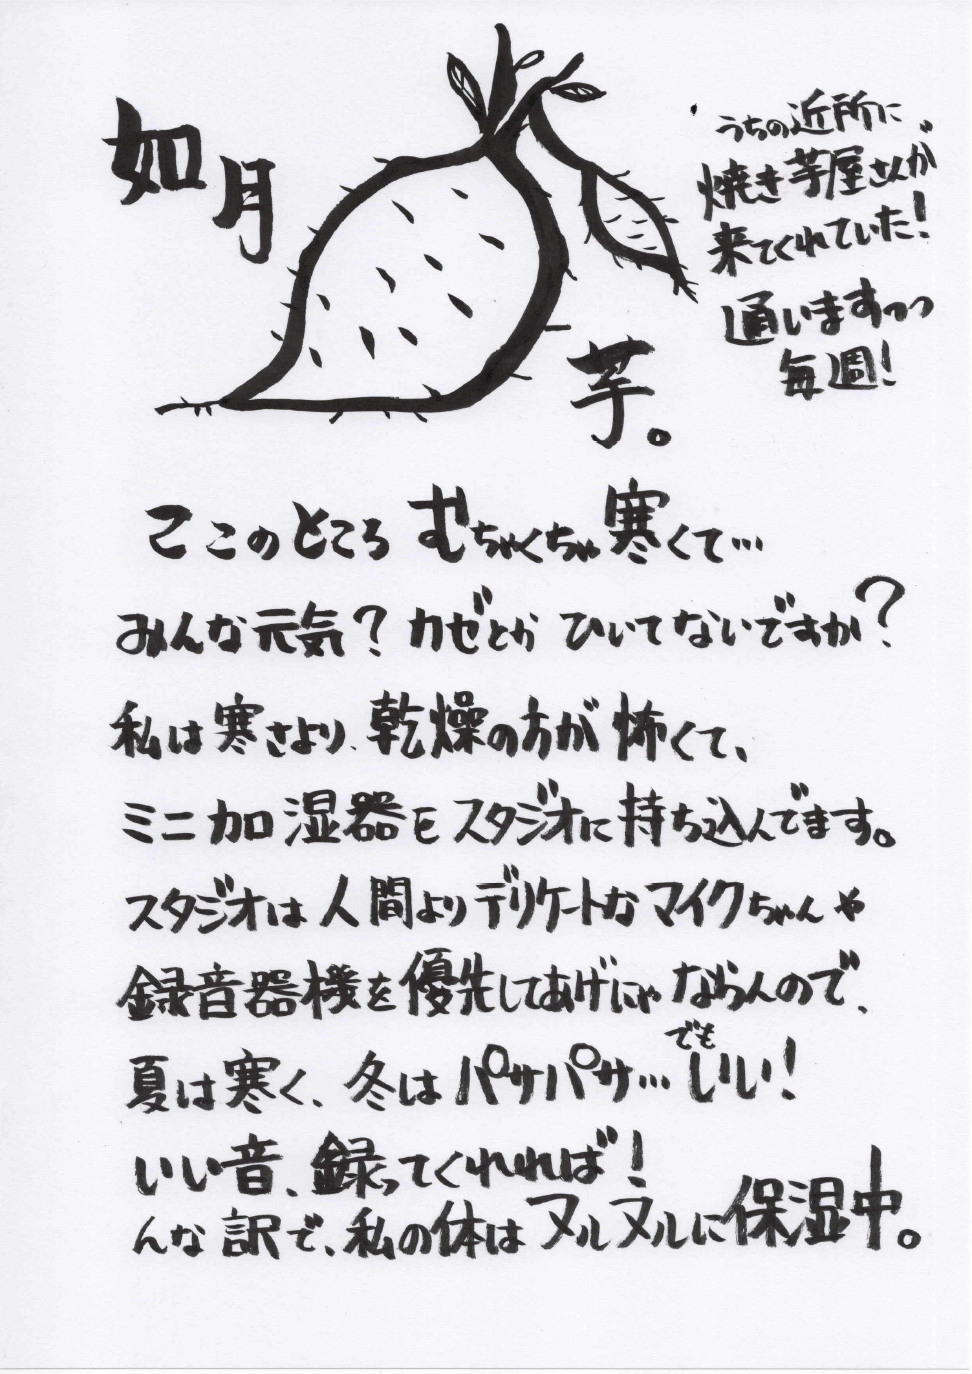 如月
芋。
うちの近所に
焼き芋屋さんが
来てくれていた!
通いますっっ
毎週!
ここのところ むちゃくちゃ寒くて…
みんな元気? カゼとか ひいてないですか?
私は寒さより、乾燥の方が怖くて、
ミニ加湿器をスタジオに持ち込んでます。
スタジオは人間よりデリケートなマイクちゃんや
録音器機を優先してあげにゃならんので、
夏は寒く、冬はパサパサ…でもいい!
いい音、録ってくれれば!
んな訳で、私の体はヌルヌルに保湿中。